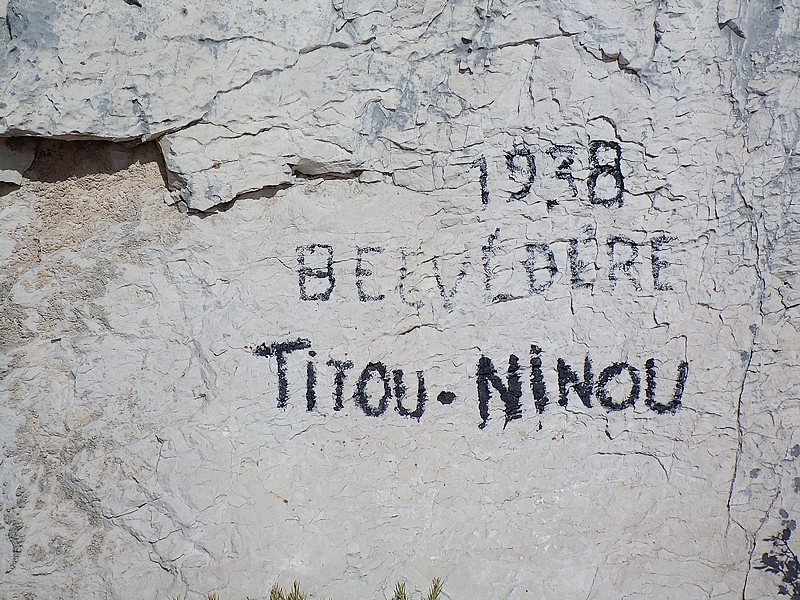 1938
BELVÉDÉRE
TITOU-NINOU